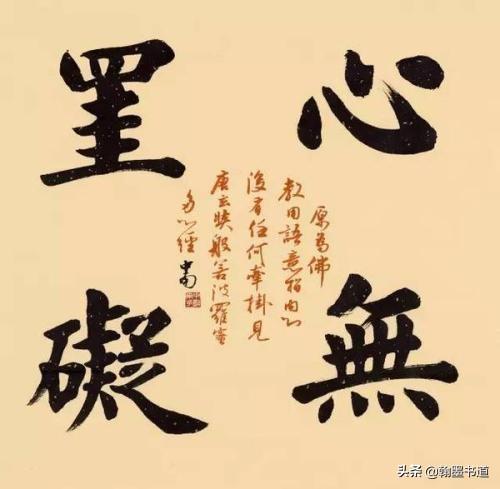 心無
罣礙
原為佛
教用語意指内心
沒有任何牽掛見
唐玄奘般若波羅蜜
多心經
头条 @翰墨书道